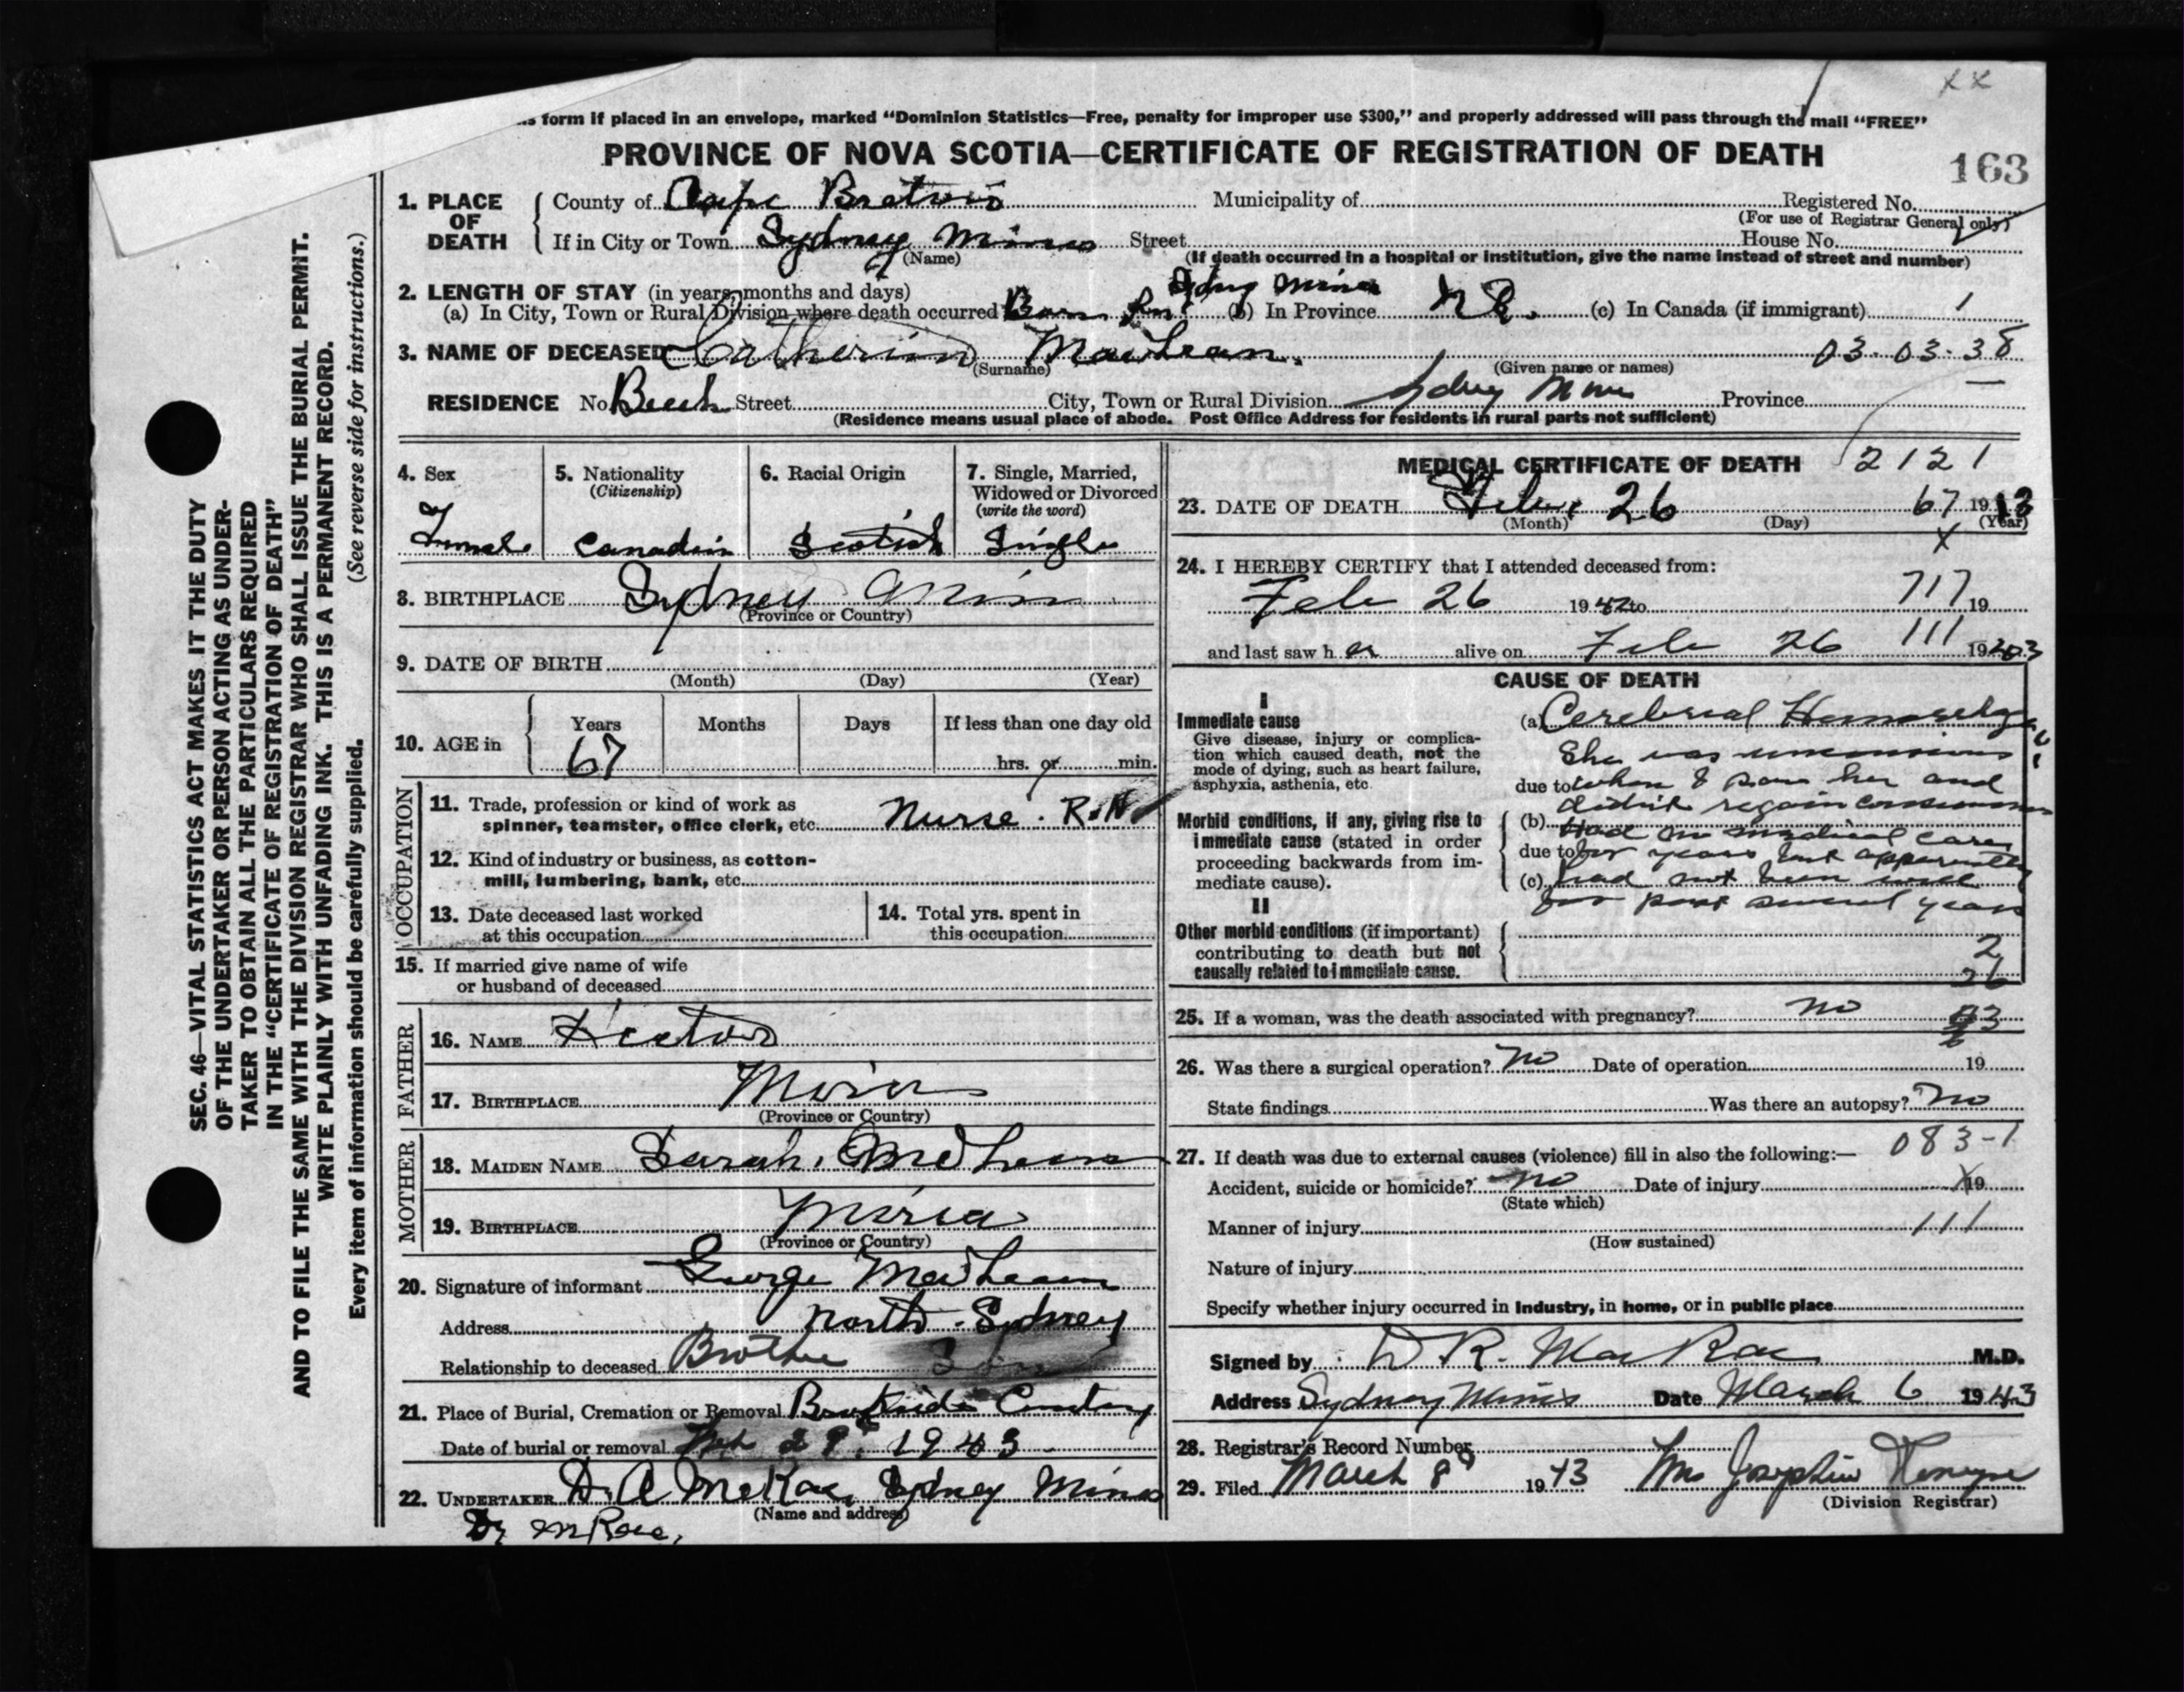 xx
form if placed in an envelope, marked "Dominion Statistics—Free, penalty for improper use $300," and properly addressed will pass through the mail "FREE"
PROVINCE OF NOVA SCOTIA—CERTIFICATE OF REGISTRATION OF DEATH
163
1. PLACE OF DEATH
County of Cape Breton Municipality of Registered No.
(For use of Registrar General only)
If in City or Town Sydney Mines Street House No.
(Name) (If death occurred in a hospital or institution, give the name instead of street and number)
2. LENGTH OF STAY (in years, months and days)
(a) In City, Town or Rural Division where death occurred Born in Sydney Mines (b) In Province (c) In Canada (if immigrant) 1
3. NAME OF DECEASED Catherine MacLean. 03-03-38
(Surname) (Given name or names)
RESIDENCE No. Beech Street City, Town or Rural Division Sydney Mines Province
(Residence means usual place of abode. Post Office Address for residents in rural parts not sufficient)
4. Sex
Female
5. Nationality
(Citizenship)
Canadian
6. Racial Origin
Scotish
7. Single, Married, Widowed or Divorced
(write the word)
Single
8. BIRTHPLACE Sydney Mines
(Province or Country)
9. DATE OF BIRTH
(Month) (Day) (Year)
10. AGE in Years Months Days If less than one day old
67 hrs. or min.
OCCUPATION
11. Trade, profession or kind of work as spinner, teamster, office clerk, etc. Nurse. R.N
12. Kind of industry or business, as cotton-mill, lumbering, bank, etc.
13. Date deceased last worked at this occupation
14. Total yrs. spent in this occupation
15. If married give name of wife or husband of deceased
FATHER
16. NAME Hector
17. BIRTHPLACE Mira
(Province or Country)
MOTHER
18. MAIDEN NAME Sarah McLean
19. BIRTHPLACE Miria
(Province or Country)
20. Signature of informant George MacLean
Address North Sydney
Relationship to deceased Brother
21. Place of Burial, Cremation or Removal Brookside Cemetery
Date of burial or removal 1943
22. UNDERTAKER D. A McRae, Sydney Mines
(Name and address)
Dr McRae.
MEDICAL CERTIFICATE OF DEATH 2121
23. DATE OF DEATH Feb. 26 67 1943
(Month) (Day) (Year)
x
24. I HEREBY CERTIFY that I attended deceased from:
Feb 26 1942 to 717 19
and last saw her alive on Feb 26 111 1943
CAUSE OF DEATH
I
Immediate cause
Give disease, injury or complication which caused death, not the mode of dying, such as heart failure, asphyxia, asthenia, etc.
Morbid conditions, if any, giving rise to immediate cause (stated in order proceeding backwards from immediate cause).
II
Other morbid conditions (if important) contributing to death but not causally related to immediate cause.
(a) Cerebrial Hemorrhage
She was unconscious
due to when I saw her and
didnt regain consciousness
(b) Had no medical care
due to for years but apparently
(c) had not been well
for past several years
2
26
25. If a woman, was the death associated with pregnancy? no 83
26. Was there a surgical operation? no Date of operation 19
State findings Was there an autopsy? no
083-1
27. If death was due to external causes (violence) fill in also the following:—
Accident, suicide or homicide? no Date of injury X 19
(State which)
Manner of injury 111
(How sustained)
Nature of injury
Specify whether injury occurred in industry, in home, or in public place
Signed by D R. MacRae M.D.
Address Sydney Mines Date March 6 1943
28. Registrar's Record Number
29. Filed March 8 1943 Mrs Josephine
(Division Registrar)
SEC. 46—VITAL STATISTICS ACT MAKES IT THE DUTY
OF THE UNDERTAKER OR PERSON ACTING AS UNDER-
TAKER TO OBTAIN ALL THE PARTICULARS REQUIRED
IN THE "CERTIFICATE OF REGISTRATION OF DEATH"
AND TO FILE THE SAME WITH THE DIVISION REGISTRAR WHO SHALL ISSUE THE BURIAL PERMIT.
WRITE PLAINLY WITH UNFADING INK. THIS IS A PERMANENT RECORD.
Every item of information should be carefully supplied. (See reverse side for instructions.)